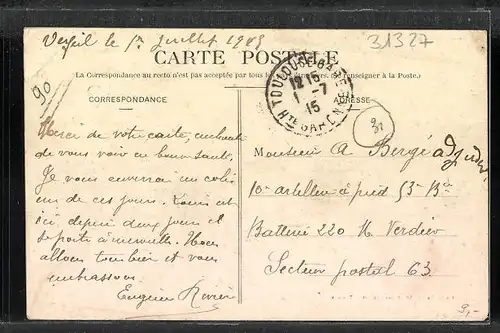 Verfeil le 1er Juillet 1915
31327
CARTE POSTALE
(La Correspondance au recto n'est pas acceptée par tous les pays étrangers. Se renseigner à la Poste.)
TOULOUSE-GARE
12 15
1 -7
15
Hte GARONNE
90
CORRESPONDANCE
ADRESSE
Merci de votre carte,
de vous voir en bonne santé.
Je vous enverrai un colis
un de ces jours. Louis est
ici depuis deux jours et
se porte à merveille. Nous
allons tous bien et vous
embrassons
Eugénie
Monsieur A Bergé
10e artillerie à pied 53e Bie
Batterie 220 M. Verdier
Secteur postal 63
9,-